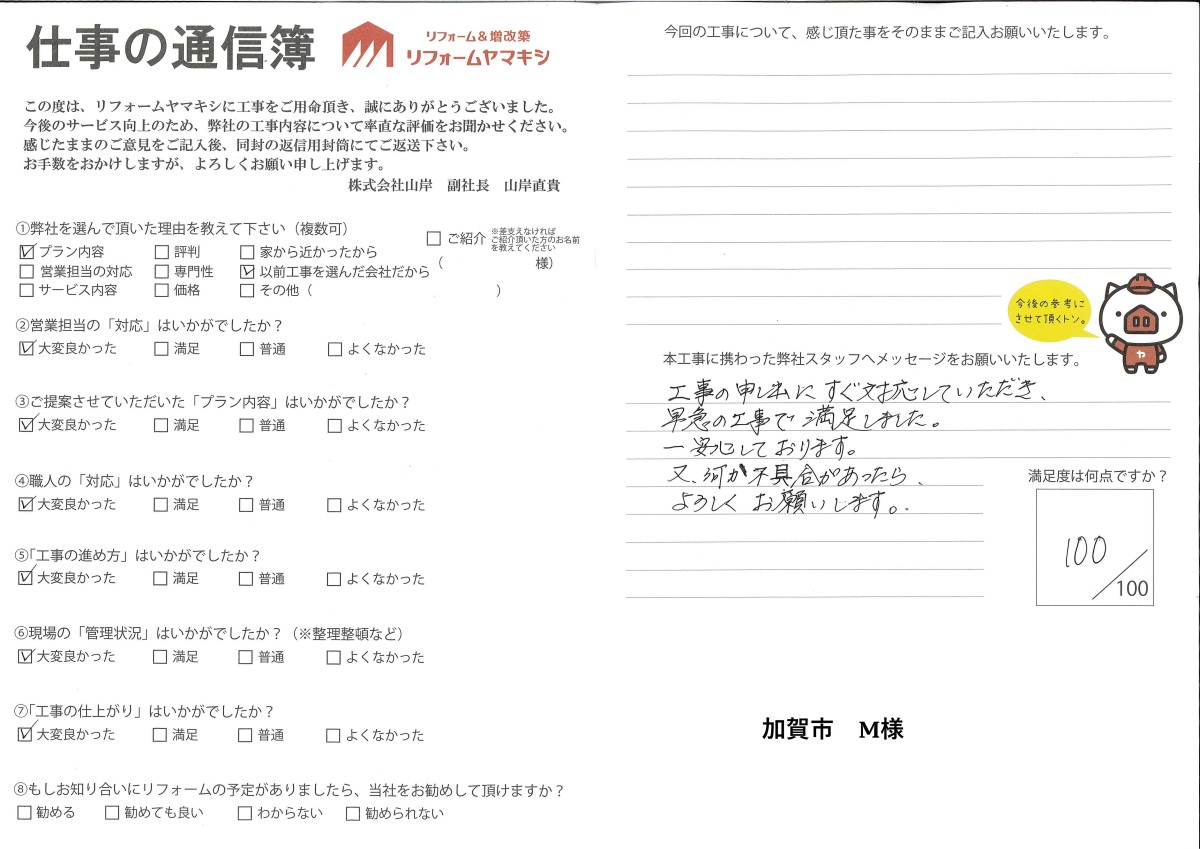 仕事の通信簿
リフォーム&増改築
リフォームヤマキシ
この度は、リフォームヤマキシに工事をご用命頂き、誠にありがとうございました。
今後のサービス向上のため、弊社の工事内容について率直な評価をお聞かせください。
感じたままのご意見をご記入後、同封の返信用封筒にてご返送下さい。
お手数をおかけしますが、よろしくお願い申し上げます。
株式会社山岸　副社長　山岸直貴
①弊社を選んで頂いた理由を教えて下さい（複数可）
☑プラン内容 □評判 □家から近かったから
□営業担当の対応 □専門性 ☑以前工事を選んだ会社だから
□サービス内容 □価格 □その他（　　　）
□ご紹介
※差支えなければ
ご紹介頂いた方のお名前
を教えてください
（　　　様）
②営業担当の「対応」はいかがでしたか？
☑大変良かった □満足 □普通 □よくなかった
③ご提案させていただいた「プラン内容」はいかがでしたか？
☑大変良かった □満足 □普通 □よくなかった
④職人の「対応」はいかがでしたか？
☑大変良かった □満足 □普通 □よくなかった
⑤「工事の進め方」はいかがでしたか？
☑大変良かった □満足 □普通 □よくなかった
⑥現場の「管理状況」はいかがでしたか？（※整理整頓など）
☑大変良かった □満足 □普通 □よくなかった
⑦「工事の仕上がり」はいかがでしたか？
☑大変良かった □満足 □普通 □よくなかった
⑧もしお知り合いにリフォームの予定がありましたら、当社をお勧めして頂けますか？
□勧める □勧めても良い □わからない □勧められない
今回の工事について、感じ頂た事をそのままご記入お願いいたします。
今後の参考に
させて頂くトン。
ヤ
本工事に携わった弊社スタッフへメッセージをお願いいたします。
工事の申し出にすぐ対応していただき、
早急の工事で満足しました。
一安心しております。
又、何か不具合があったら、
よろしくお願いします。
満足度は何点ですか？
100/100
加賀市　M様